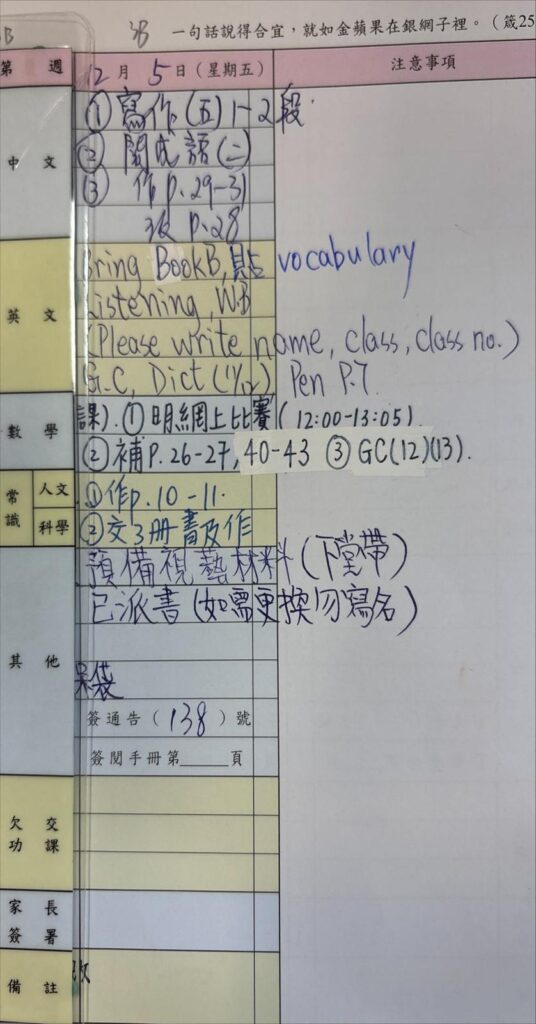 3B 一句話說得合宜，就如金蘋果在銀網子裡。（箴25
第 週 12月5日（星期五） 注意事項
中文 ① 寫作(五) 1-2段.
② 閱成語(二)
③ 作p.29-31
p.28
英文 Bring BookB,貼 vocabulary
Listening, WB
(Please write name, class, class no.)
G.C, Dict (1/12) Pen P.7
數學 課). ① 明網上比賽( 12:00-13:05).
② 補P.26-27, 40-43 ③ GC(12)(13).
常識 人文 ①作p.10-11.
科學 ②交3冊書及作
其他 預備視藝材料(下堂帶)
已派書(如需更換勿寫名)
袋
簽通告（138）號
簽閱手冊第____頁
欠交功課
家長簽署
備註